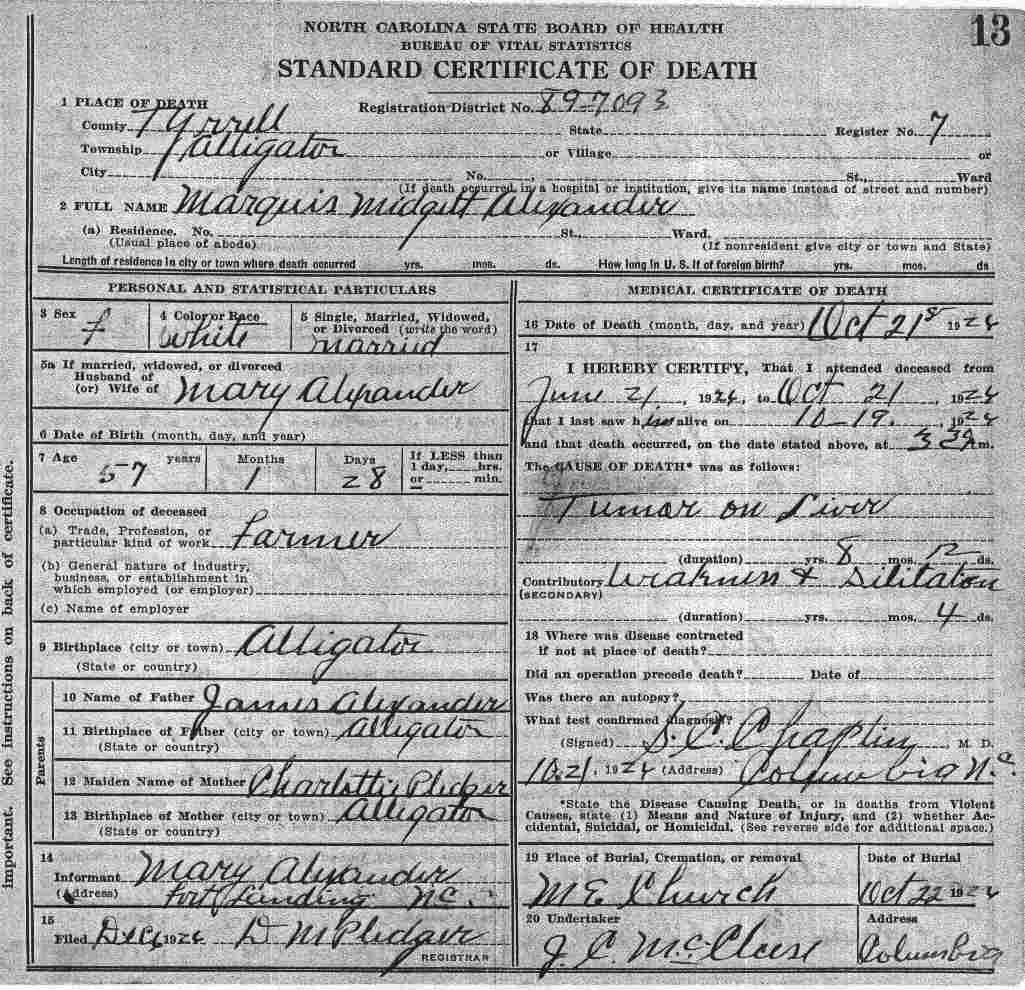 13
NORTH CAROLINA STATE BOARD OF HEALTH
BUREAU OF VITAL STATISTICS
STANDARD CERTIFICATE OF DEATH
1 PLACE OF DEATH
Registration District No. 89-7093
County Tyrrell State Register No. 7
Township Alligator or Village or
City No. St., Ward
(If death occurred in a hospital or institution, give its name instead of street and number)
2 FULL NAME Marquis Midgett Alexander
(a) Residence. No. St., Ward.
(Usual place of abode) (If nonresident give city or town and State)
Length of residence in city or town where death occurred yrs. mos. ds. How long in U. S. if of foreign birth? yrs. mos. ds
PERSONAL AND STATISTICAL PARTICULARS
3 Sex 4 Color or Race 5 Single, Married, Widowed,
or Divorced (write the word)
f White Married
5a If married, widowed, or divorced
Husband of
(or) Wife of Mary Alexander
6 Date of Birth (month, day, and year)
7 Age 57 years Months 1 Days 28 If LESS than
1 day, hrs.
or min.
8 Occupation of deceased
(a) Trade, Profession, or
particular kind of work Farmer
(b) General nature of industry,
business, or establishment in
which employed (or employer)
(c) Name of employer
9 Birthplace (city or town) Alligator
(State or country)
Parents
10 Name of Father James Alexander
11 Birthplace of Father (city or town) Alligator
(State or country)
12 Maiden Name of Mother Charlottie Pledger
13 Birthplace of Mother (city or town) Alligator
(State or country)
14
Informant Mary Alexander
(Address) Fort Landing N.C.
15
Filed Dec 1924 D M Pledger
REGISTRAR
MEDICAL CERTIFICATE OF DEATH
16 Date of Death (month, day, and year) Oct 21 1924
17
I HEREBY CERTIFY, That I attended deceased from
June 21, 1924, to Oct 21, 1924
that I last saw him alive on 10-19, 1924
and that death occurred, on the date stated above, at m.
The CAUSE OF DEATH* was as follows:
Tumor on Liver
(duration) yrs. 8 mos. 12 ds.
Contributory Weakness &
(SECONDARY)
(duration) yrs. mos. 4 ds.
18 Where was disease contracted
if not at place of death?
Did an operation precede death? Date of
Was there an autopsy?
What test confirmed diagnosis?
(Signed) S. C. Chaplin, M. D.
10.21, 1924 (Address) Columbia N.C.
*State the Disease Causing Death, or in deaths from Violent
Causes, state (1) Means and Nature of Injury, and (2) whether Ac-
cidental, Suicidal, or Homicidal. (See reverse side for additional space.)
19 Place of Burial, Cremation, or removal Date of Burial
M E Church Oct 22 1924
20 Undertaker Address
J. C. McCleese Columbia
important. See instructions on back of certificate.